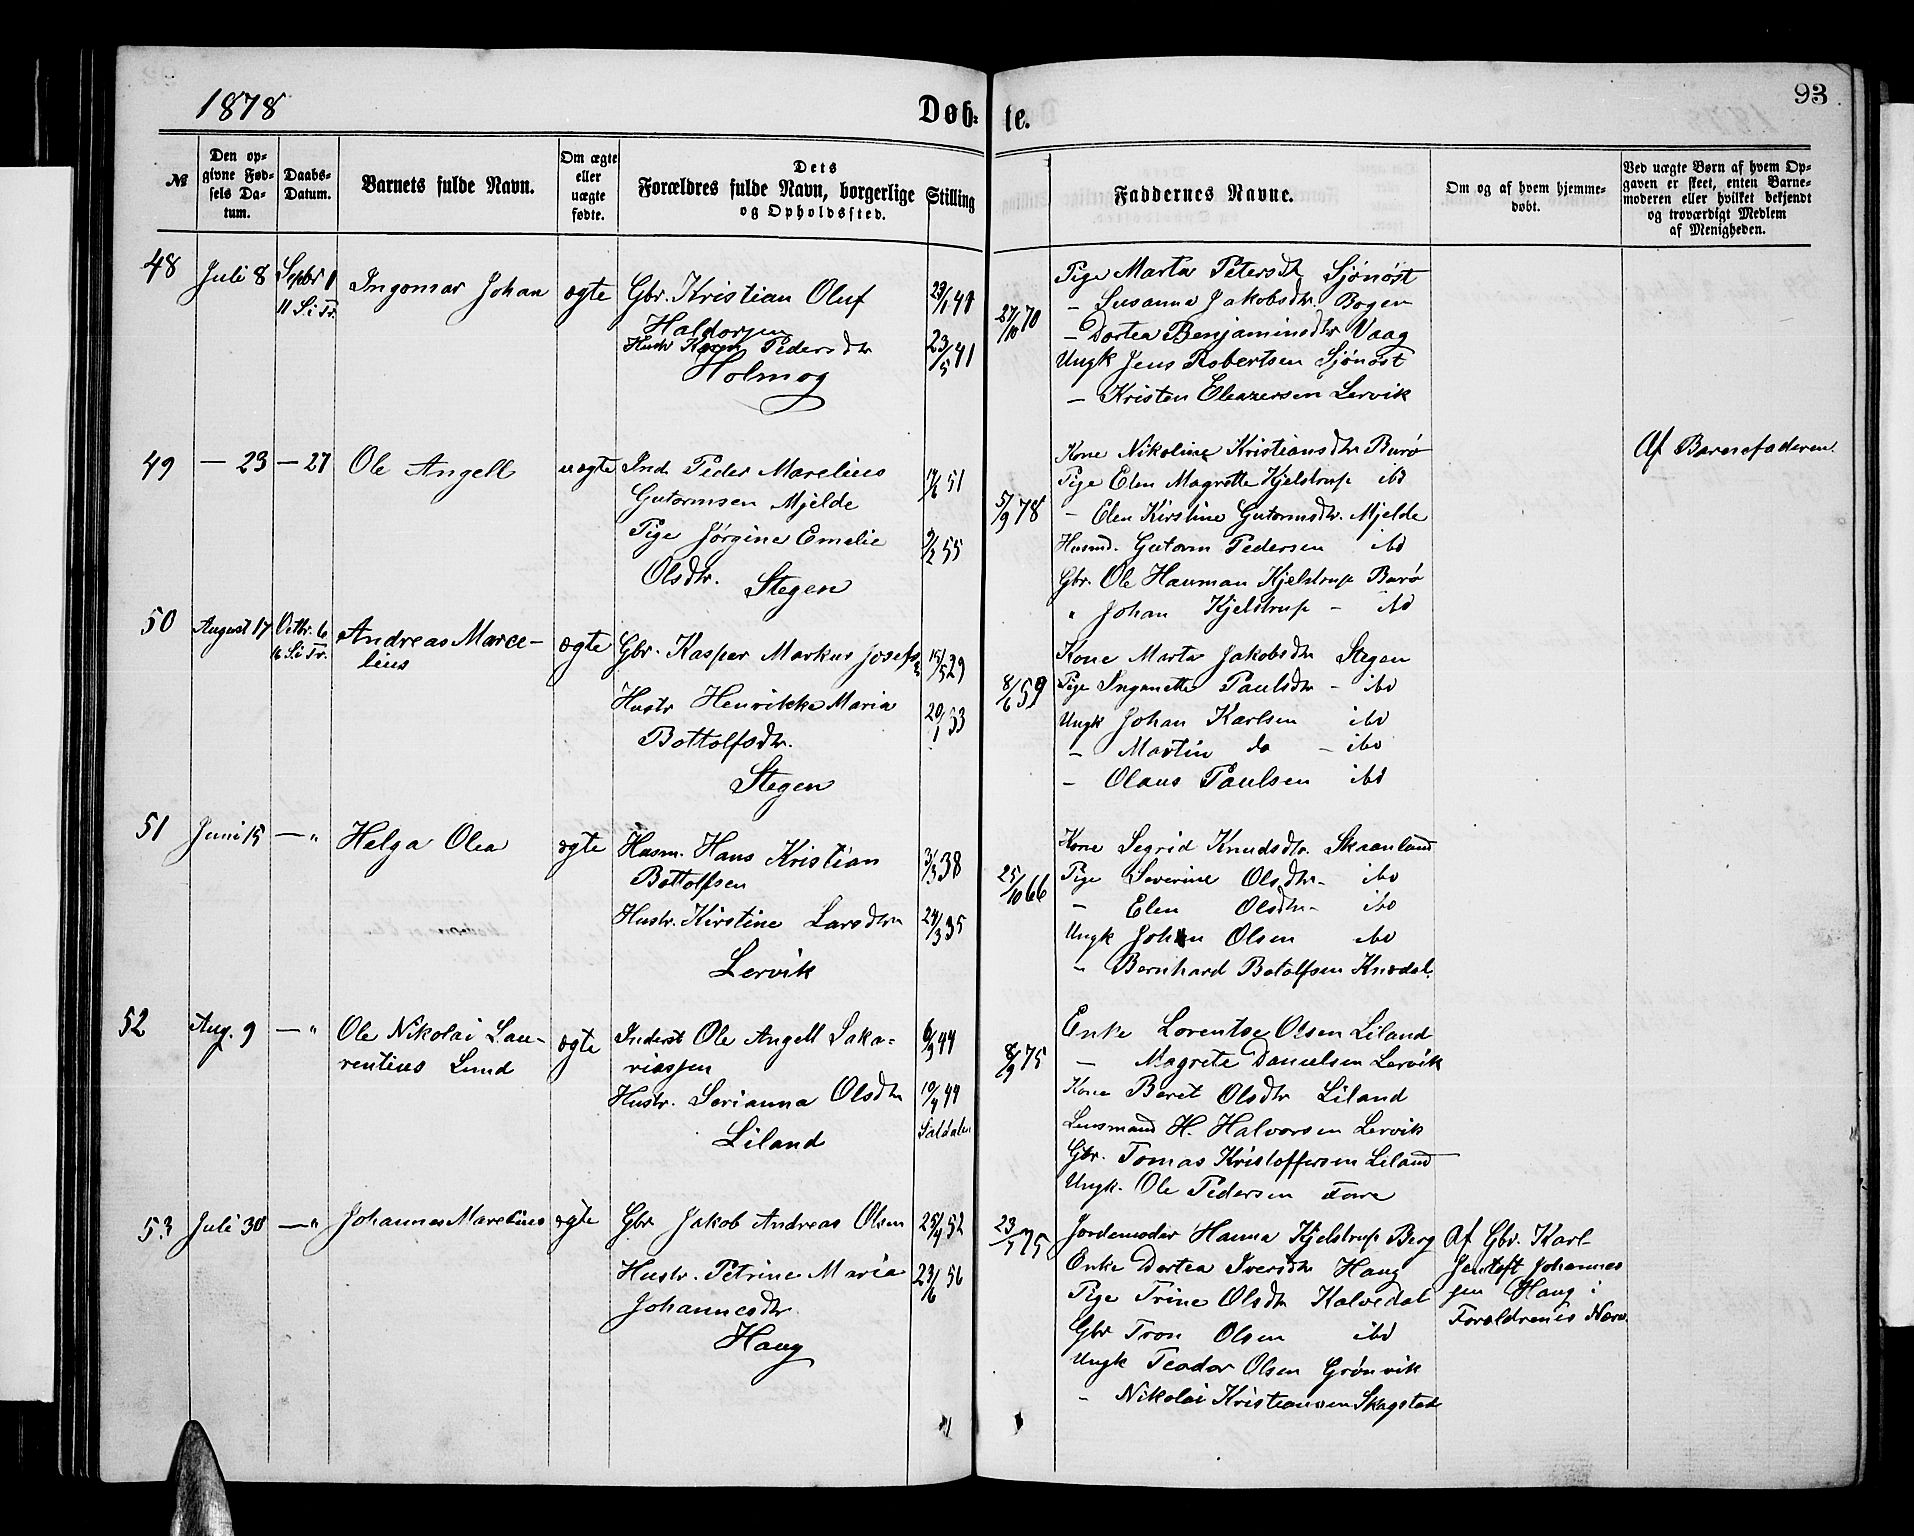 1878
Døb-
te.
93
№
Den opgivne Fødsels Datum.
Daabs-Datum.
Barnets fulde Navn.
Om ægte eller uægte fødte.
Dets Forældres fulde Navn, borgerlige Stilling og Opholdssted.
Faddernes Navne.
Om og af hvem hjemmedøbt.
Ved uægte Børn af hvem Opgaven er skeet, enten Barnemoderen eller hvilket bekjendt og troværdigt Medlem af Menigheden.
48 Juli 8 Septbr 1 Ingomar Johan ægte Gbr. Kristian Oluf
11 S. i Tr.
Haldorsen
Hustr Karen Pedersdtr 23/5 41
Holmog
27/10 70
Pige Marta Petersdtr Sjønøst
— Susanna Jakobsdtr. Bogen
— Dortea Benjaminsdtr Vaag
Ungk Jens Robertsen Sjønøst
— Kristen Eleazersen Lervik
49 — 23 — 27 Ole Angell uægte Ind. Peder Marelius
Gutormsen Mjelde
Pige Jørgine Emelie 9/2 55
Olsdtr. Stegen
5/9 78
Kone Nikoline Kristiansdtr Burø
Pige Elen Magrette Kjelstrup ibd
— Elen Kirstine Gutormsdtr. Mjelde
Husmd. Gutorm Pedersen ibd
Gbr. Ole Hauman Kjelstrup Burø
" Johan Kjelstrup — ibd
Af Barnefaderen
50 August 17 Octbr. 6 Andreas Marce- ægte Gbr. Kasper Markus Josefs. 15/5 29
16 S. i Tr. lius
Hustr Henrikke Maria 20/1 33
Bottolfsdtr.
Stegen
8/6 59
Kone Marta Jakobsdtr Stegen
Pige Inganette Paulsdtr — ibd
Ungk Johan Karlsen ibd
— Martin do — ibd
— Olaus Paulsen ibd
51 Juni 15 — " Helga Olea ægte Husm. Hans Kristian 3/3 38
Bottolfsen
Hustr. Kirstine Larsdtr 24/3 35
Lervik
25/10 66
Kone Segrid Knudsdtr. Skaanland
Pige Severine Olsdtr — ibd
— Elen Olsdtr — ibd
Ungk Johan Olsen ibd
— Bernhard Botolfsen Knædal.
52 Aug. 9 — " Ole Nikolai Lau- ægte Inderst Ole Angell Saka- 6/9 44
rentius Lund riassen
Hustr. Serianna Olsdtr 10/4 44
Liland Saldalen
8/9 75
Enke Lorentse Olsen Liland
— Magrete Danielsen Lervik
Kone Beret Olsdtr Liland
Lensmand H. Halvorsen Lervik
Gbr. Tomas Kristoffersen Liland
Ungk. Ole Pedersen Fore
53 Juli 30 — " Johannes Marelius ægte Gbr Jakob Andreas Olsen 25/4 52
Hustr. Petrine Maria 23/6 56
Johannesdtr.
Haug
23/7 75
Jordemoder Hanna Kjelstrup Berg
Enke Dortea Iversdtr Haug
Pige Trine Olsdtr Kalvedal
Gbr Tron Olsen ibd
Ungk Teodor Olsen Grønvik
— Nikolai Kristiansen Skagstad
Af Gbr. Karl
Jentoft Johannes
sen Haug i
Forældrenes Nærv.